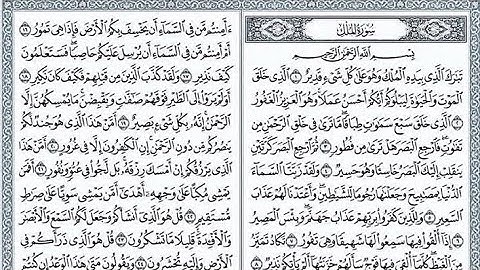 سُورَةُ المُلْكِ
بِسْمِ ٱللَّهِ ٱلرَّحْمَٰنِ ٱلرَّحِيمِ
تَبَٰرَكَ ٱلَّذِى بِيَدِهِ ٱلْمُلْكُ وَهُوَ عَلَىٰ كُلِّ شَىْءٍ قَدِيرٌ ١ ٱلَّذِى خَلَقَ
ٱلْمَوْتَ وَٱلْحَيَوٰةَ لِيَبْلُوَكُمْ أَيُّكُمْ أَحْسَنُ عَمَلًا وَهُوَ ٱلْعَزِيزُ ٱلْغَفُورُ
٢ ٱلَّذِى خَلَقَ سَبْعَ سَمَٰوَٰتٍ طِبَاقًا مَّا تَرَىٰ فِى خَلْقِ ٱلرَّحْمَٰنِ مِن
تَفَٰوُتٍ فَٱرْجِعِ ٱلْبَصَرَ هَلْ تَرَىٰ مِن فُطُورٍ ٣ ثُمَّ ٱرْجِعِ ٱلْبَصَرَ كَرَّتَيْنِ
يَنقَلِبْ إِلَيْكَ ٱلْبَصَرُ خَاسِئًا وَهُوَ حَسِيرٌ ٤ وَلَقَدْ زَيَّنَّا ٱلسَّمَآءَ
ٱلدُّنْيَا بِمَصَٰبِيحَ وَجَعَلْنَٰهَا رُجُومًا لِّلشَّيَٰطِينِ وَأَعْتَدْنَا لَهُمْ عَذَابَ
ٱلسَّعِيرِ ٥ وَلِلَّذِينَ كَفَرُوا۟ بِرَبِّهِمْ عَذَابُ جَهَنَّمَ وَبِئْسَ ٱلْمَصِيرُ
٦ إِذَآ أُلْقُوا۟ فِيهَا سَمِعُوا۟ لَهَا شَهِيقًا وَهِىَ تَفُورُ ٧ تَكَادُ تَمَيَّزُ
مِنَ ٱلْغَيْظِ كُلَّمَآ أُلْقِىَ فِيهَا فَوْجٌ سَأَلَهُمْ خَزَنَتُهَآ أَلَمْ يَأْتِكُمْ نَذِيرٌ ٨
ءَأَمِنتُم مَّن فِى ٱلسَّمَآءِ أَن يَخْسِفَ بِكُمُ ٱلْأَرْضَ فَإِذَا هِىَ تَمُورُ ١٦
أَمْ أَمِنتُم مَّن فِى ٱلسَّمَآءِ أَن يُرْسِلَ عَلَيْكُمْ حَاصِبًا فَسَتَعْلَمُونَ
كَيْفَ نَذِيرِ ١٧ وَلَقَدْ كَذَّبَ ٱلَّذِينَ مِن قَبْلِهِمْ فَكَيْفَ كَانَ نَكِيرِ ١٨
أَوَلَمْ يَرَوْا۟ إِلَى ٱلطَّيْرِ فَوْقَهُمْ صَٰٓفَّٰتٍ وَيَقْبِضْنَ مَا يُمْسِكُهُنَّ إِلَّا
ٱلرَّحْمَٰنُ إِنَّهُۥ بِكُلِّ شَىْءٍ بَصِيرٌ ١٩ أَمَّنْ هَٰذَا ٱلَّذِى هُوَ جُندٌ لَّكُمْ
يَنصُرُكُم مِّن دُونِ ٱلرَّحْمَٰنِ إِنِ ٱلْكَٰفِرُونَ إِلَّا فِى غُرُورٍ ٢٠ أَمَّنْ هَٰذَا
ٱلَّذِى يَرْزُقُكُمْ إِنْ أَمْسَكَ رِزْقَهُۥ بَل لَّجُّوا۟ فِى عُتُوٍّ وَنُفُورٍ ٢١ أَفَمَن
يَمْشِى مُكِبًّا عَلَىٰ وَجْهِهِۦٓ أَهْدَىٰٓ أَمَّن يَمْشِى سَوِيًّا عَلَىٰ صِرَٰطٍ
مُّسْتَقِيمٍ ٢٢ قُلْ هُوَ ٱلَّذِىٓ أَنشَأَكُمْ وَجَعَلَ لَكُمُ ٱلسَّمْعَ وَٱلْأَبْصَٰرَ
وَٱلْأَفْـِٔدَةَ قَلِيلًا مَّا تَشْكُرُونَ ٢٣ قُلْ هُوَ ٱلَّذِى ذَرَأَكُمْ فِى
ٱلْأَرْضِ وَإِلَيْهِ تُحْشَرُونَ ٢٤ وَيَقُولُونَ مَتَىٰ هَٰذَا ٱلْوَعْدُ إِن كُنتُمْ